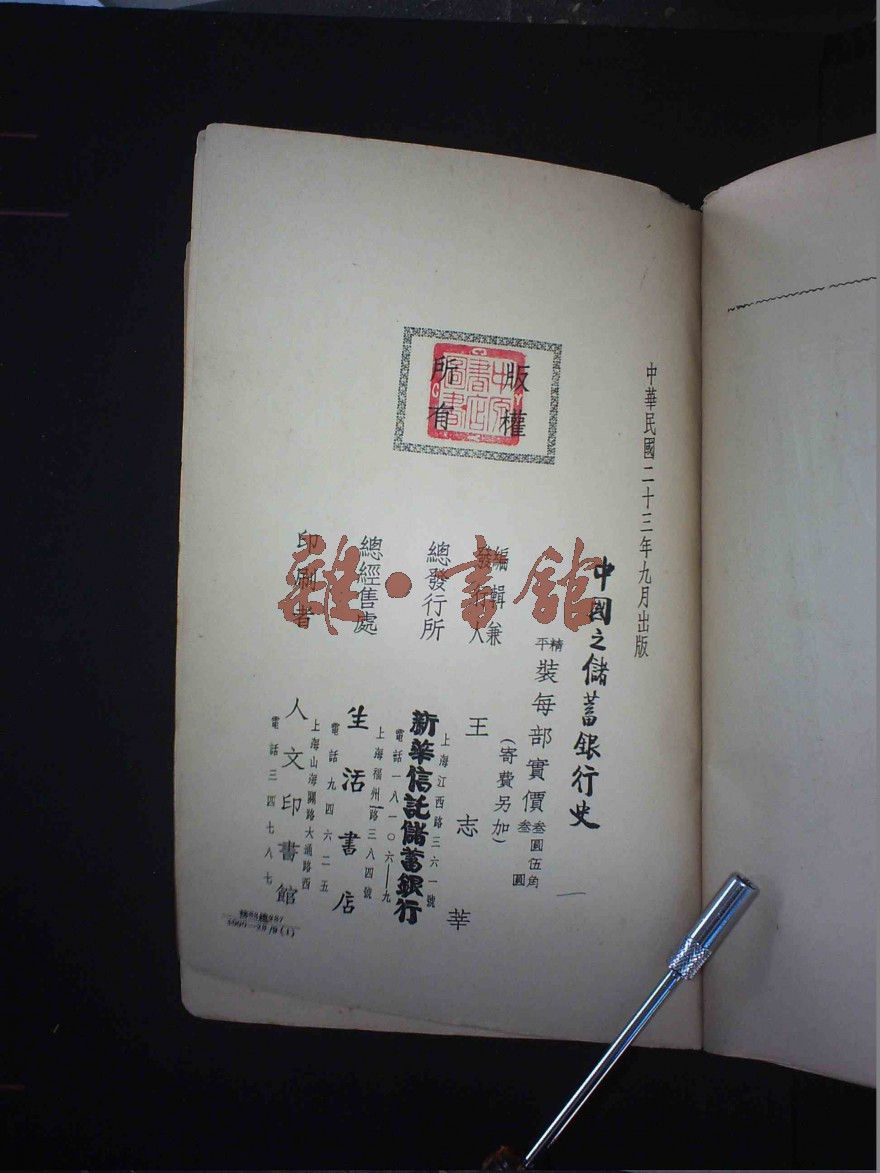 中華民國二十三年九月出版
中國之儲蓄銀行史
精平裝每部實價叁圓伍角叁圓
(寄費另加)
編輯兼發行人
王志莘
總發行所
上海江西路三六一號
新華信託儲蓄銀行
電話一八一〇六—九
總經售處
上海福州路三八四號
生活書店
電話九四六二五
印刷者
人文印書館
上海山海關路大通路西
電話三四七八七
版權所有
雜·書館